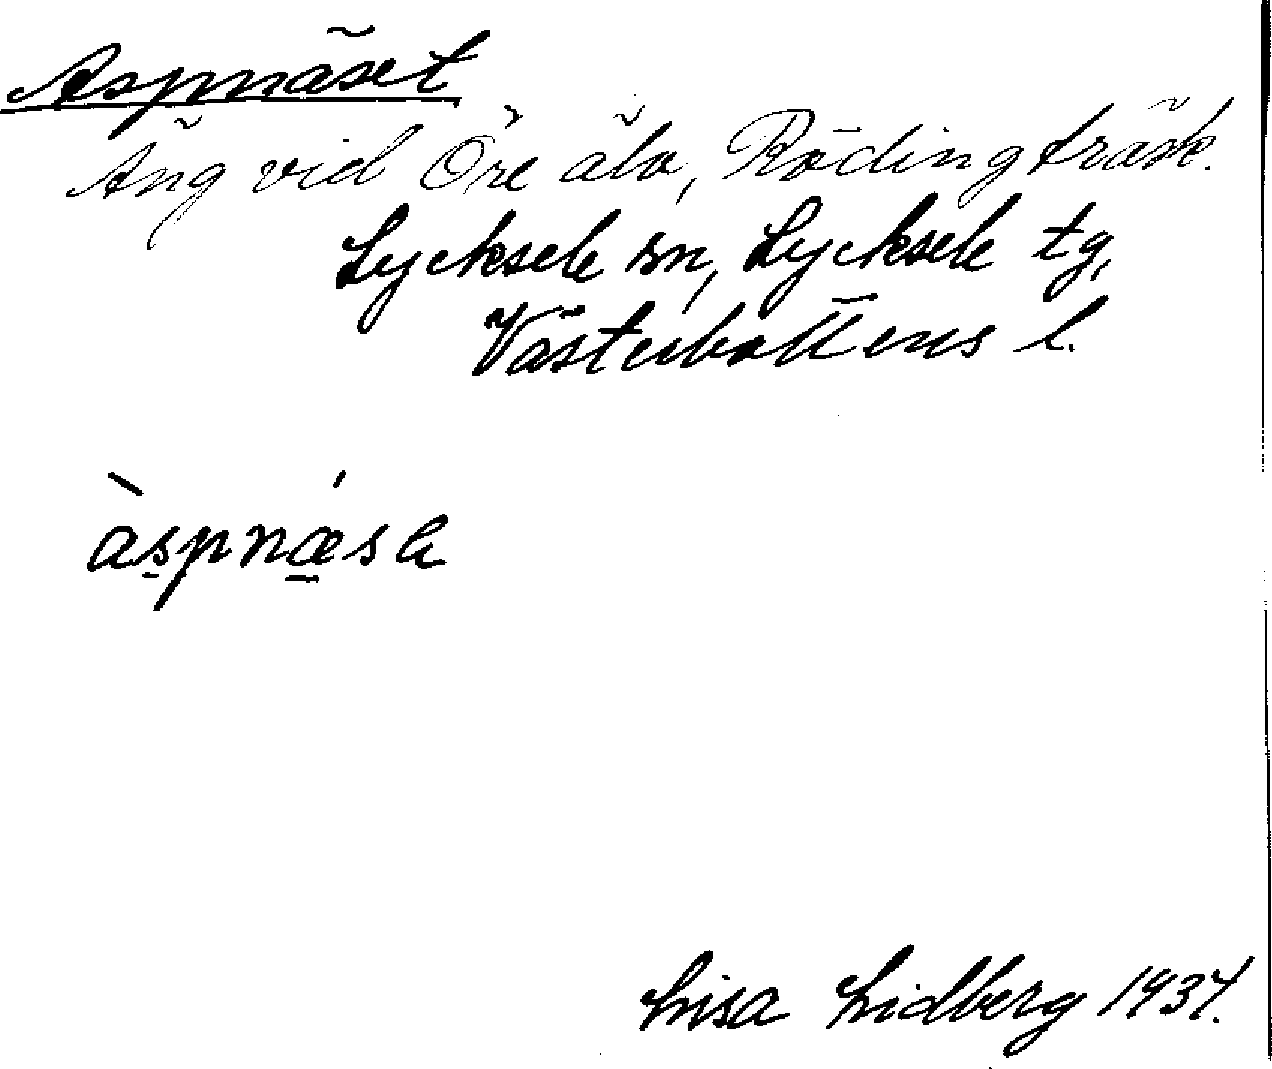 Aspnäset
Äng vid Öre älv, Rödingträsk.
Lycksele sn, Lycksele tg,
Västerbottens l.
àspnǽsɐ
Lisa Lidberg 1937.